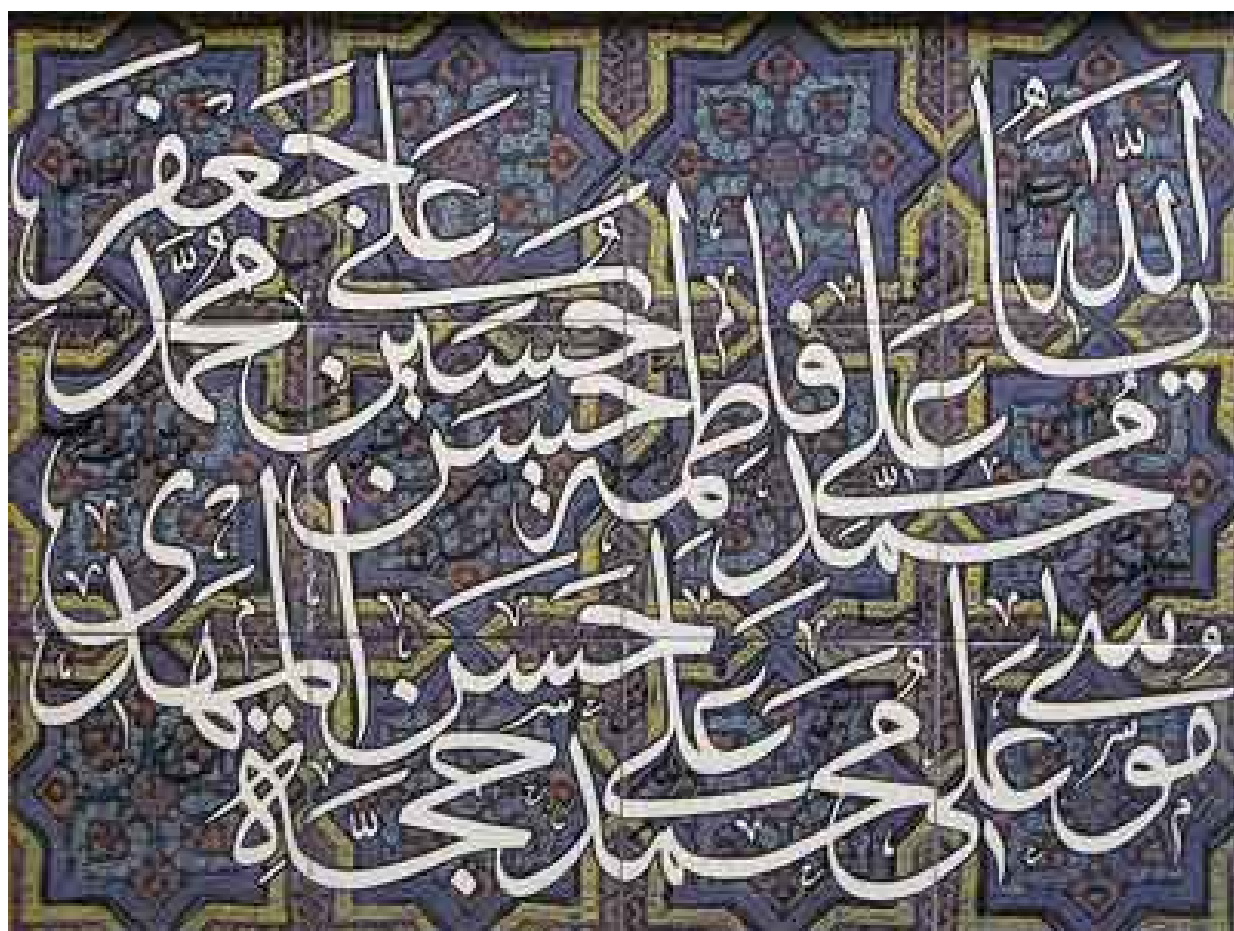 يا الله
محمد علي فاطمة حسن حسين علي محمد جعفر
موسى علي محمد علي حسن حجة المهدي